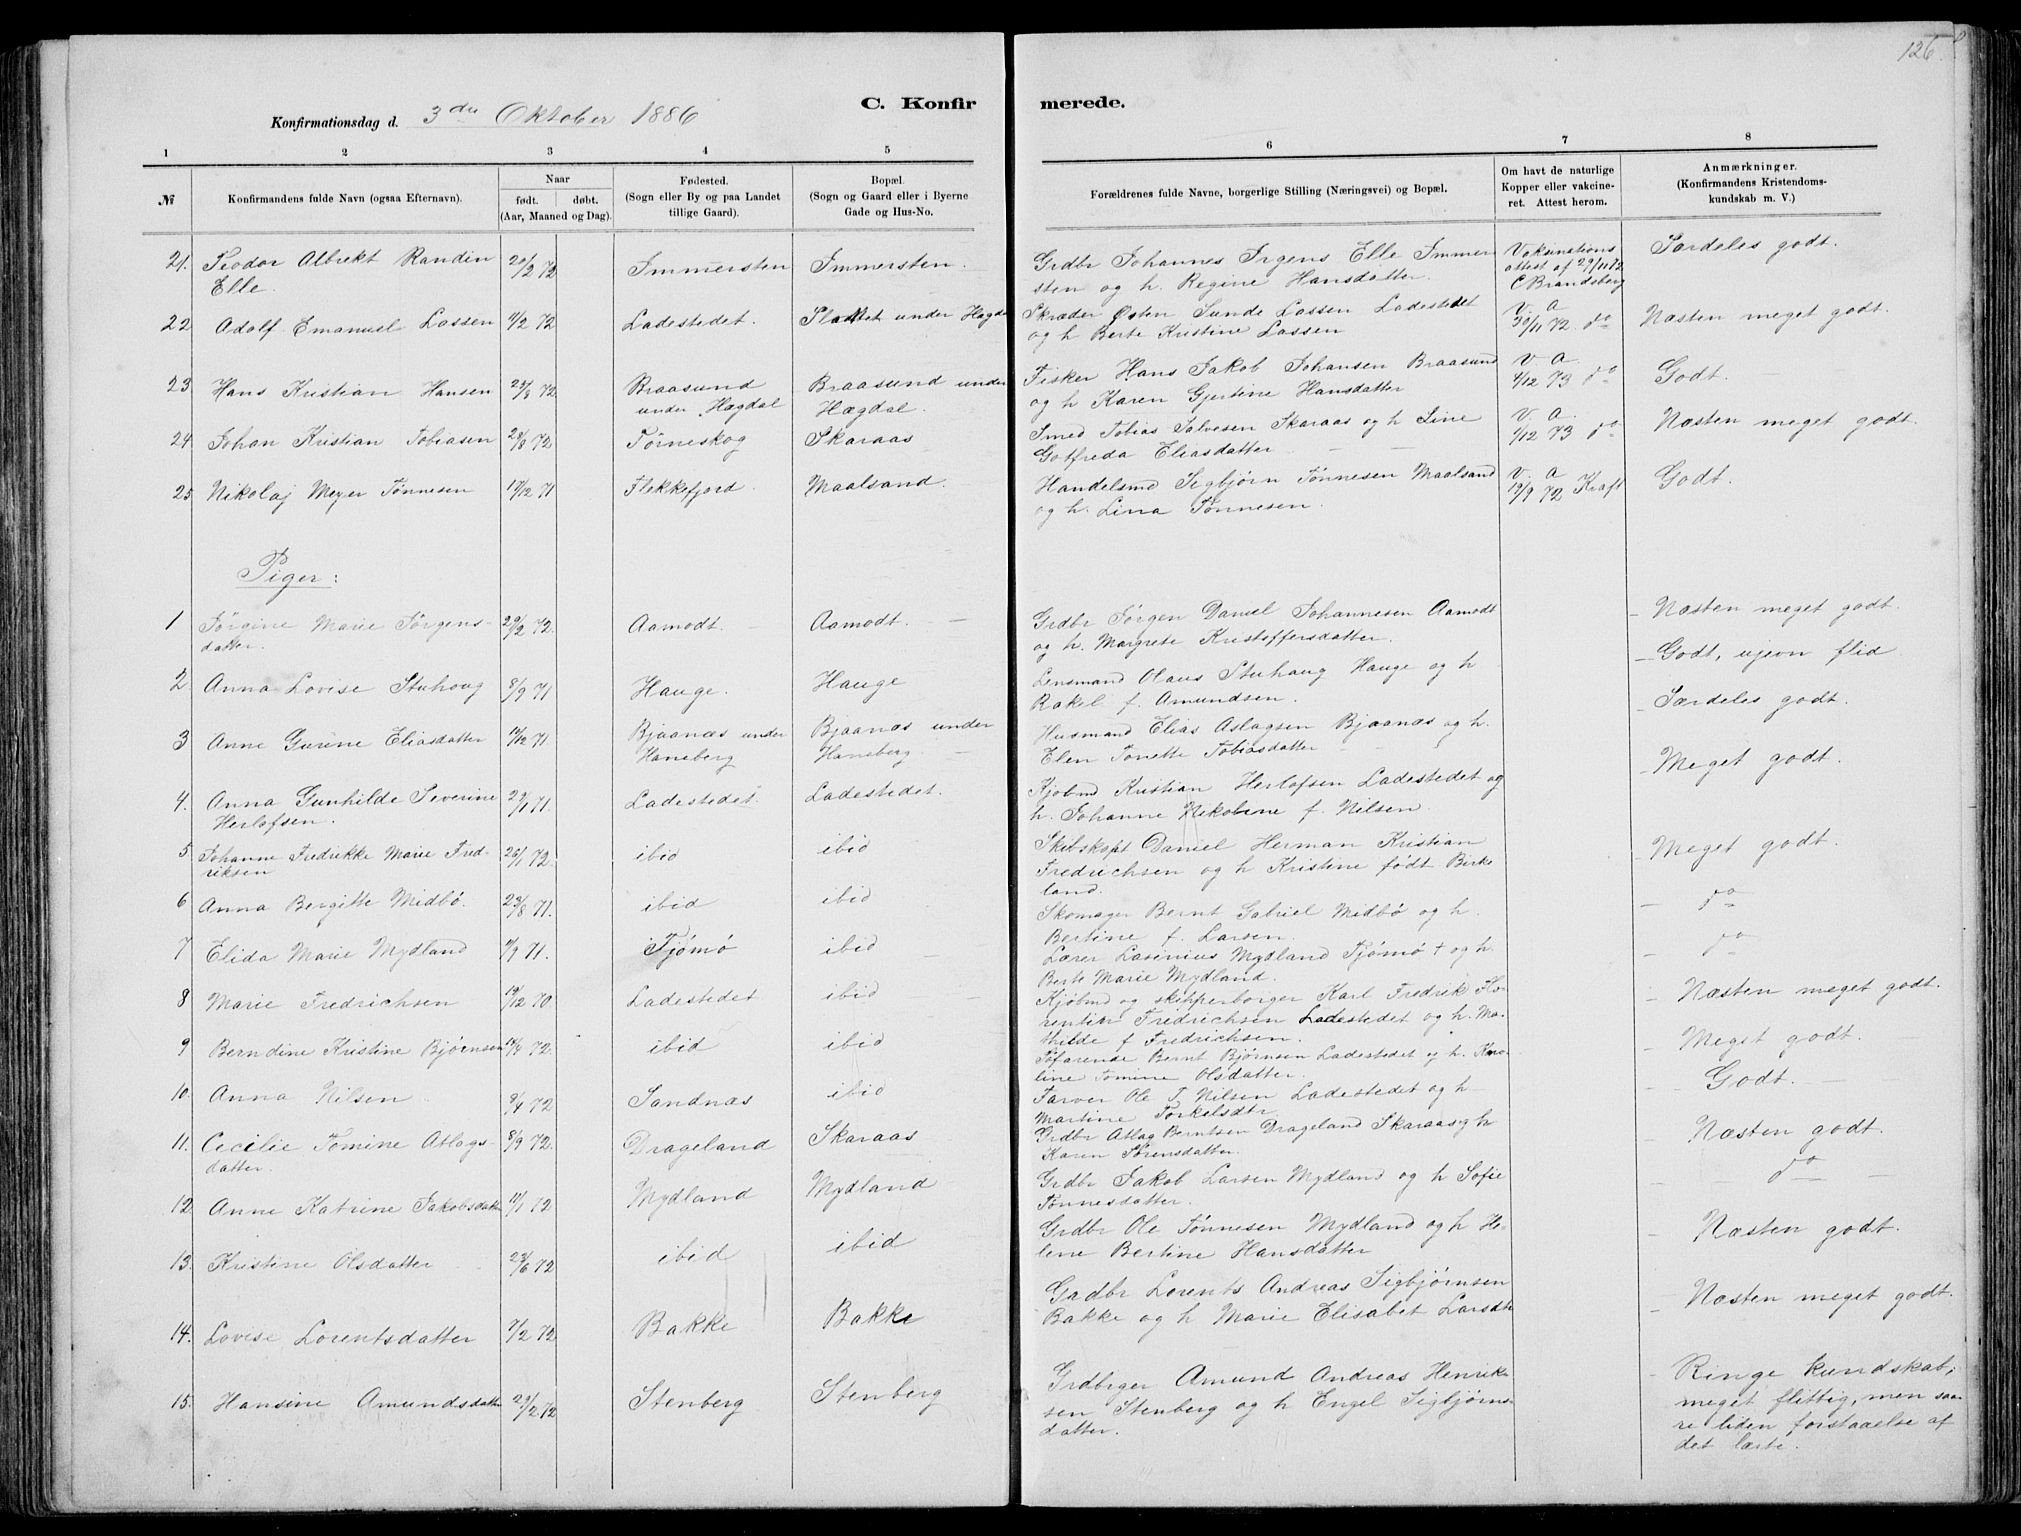 126
C. Konfirmerede.
Konfirmationsdag d. 3die Oktober 1886
1 2 3 4 5 6 7 8
№ Konfirmandens fulde Navn (ogsaa Efternavn). Naar født. døbt. (Aar, Maaned og Dag). Fødested. (Sogn eller By og paa Landet tillige Gaard). Bopæl. (Sogn og Gaard eller i Byerne Gade og Hus-No. Forældrenes fulde Navne, borgerlige Stilling (Næringsvei) og Bopæl. Om havt de naturlige Kopper eller vakcineret. Attest herom. Anmærkninger. (Konfirmandens Kristendomskundskab m. V.)
21. Teodor Albrekt Randin 20/2 72 Immersten Immersten. Grdbr Johannes Irgens Elle Immer Vaksinations Særdeles godt.
Elle. sten og h. Regine Hansdatter. attest af 29/11 72
C Brandsberg
22 Adolf Emanuel Lassen 11/2 72 Ladestedet. Slottet under Hægda Skræder Østen Sunde Lassen Ladestedet V. A Næsten meget godt.
og h Berte Kristine Lassen 30/11 72. do
23 Hans Kristian Hansen 23/8 72 Braasund Braasund under Fisker Hans Jakob Johansen Braasund V A. Godt.
under Hægdal Hægdal. og h Karen Gjertine Hansdatter 4/12 73 do
24 Johan Kristian Tobiasen 28/8 72 Törneskog Skaraas Smed Tobias Salvesen Skaraas og h Sine V. A. Næsten meget godt.
Gotfreda Eliasdatter 1/12 73 do
25 Nikolaj Meyer Tönnesen 17/12 71 Flekkefjord. Maalsand. Handelsmd Sigbjörn Tönnesen Maalsand V. A Godt.
og h. Lina Tönnesen. 19/9 72 Kraft
Piger:
1 Jörgine Marie Jörgens- 29/2 72. Aamodt. Aamodt. Grdbr Jörgen Daniel Johannesen Aamodt Næsten meget godt.
datter. og h. Margrete Kristoffersdatter.
2 Anna Lovise Stuhoug 8/9 71 Hauge. Hauge Lensmand Olaus Stuhaug Hauge og h Godt, ujevn flid
Rakel f. Amundsen.
3 Anne Gurine Eliasdatter 12/12 71. Bjaanæs under Bjaanæs under Husmand Elias Aslagsen Bjaanæs og h. Særdeles godt.
Haneberg Haneberg Elen Tonette Tobiasdatter
4. Anna Gunhilde Severine 29/1 71. Ladestedet. Ladestedet. Kjøbmd Kristian Herlofsen Ladestedet og Meget godt.
Herlofsen. h. Johanne Nikoline f. Nilsen.
5 Johanne Fredrikke Marie Fred- 26/1 72. ibid ibid Skibskapt Daniel Herman Kristian Meget godt.
riksen Fredrichsen og h Kristine født Birke
land.
6 Anna Bergitte Midbö. 23/8 71. ibid ibid Skomager Bernt Gabriel Midbö og h. do
Bertine f. Larsen.
7 Elida Marie Mydland 11/9 71. Tjömö ibid Lærer Lasinius Mydland Tjömö † og h. do
Berte Marie Mydland.
8 Marie Fredrichsen 19/12 70. Ladestedet ibid Kjøbmd og skipperborger Karl Fredrik Flo- Næsten meget godt.
rentin Fredrichsen Ladestedet og h. Ma-
thilde f Fredrichsen.
9 Berndine Kristine Bjørnsen 14/4 72. ibid ibid Söfarende Bernt Bjørnsen Ladestedet og h. Karo- Meget godt.
line Tomine Olsdatter.
10. Anna Nilsen 9/4 72 Sandnæs ibid Farver Ole T. Nilsen Ladestedet og h Godt.
Martine Torkelsdtr
11. Cecilie Tomine Atlags- 8/9 72. Drageland Skaraas Grdbr Atlag Berntsen Drageland Skaraas og h Næsten godt.
datter. Karen Sörensdatter.
12. Anne Katrine Jakobsdatter 11/1 72 Mydland Mydland Grdbr Jakob Larsen Mydland og h Sofie do
Tönnesdatter.
13. Kristine Olsdatter 23/6 72 ibid ibid Grdbr Ole Tönnesen Mydland og h He- Næsten godt.
lene Bertine Hansdatter
14. Lovise Lorentsdatter 7/2 72 Bakke Bakke Grdbr Lorents Andreas Sigbjørnsen Næsten meget godt.
Bakke og h Marie Elisabet Larsdtr
15. Hansine Amundsdatter 29/2 72 Stenberg Stenberg Grdbrger Amund Andreas Henrik- Ringe kundskab;
sen Stenberg og h Engel Sigbjörns- meget flittig, men saa-
datter. re liden forstaaelse af
det lærte.